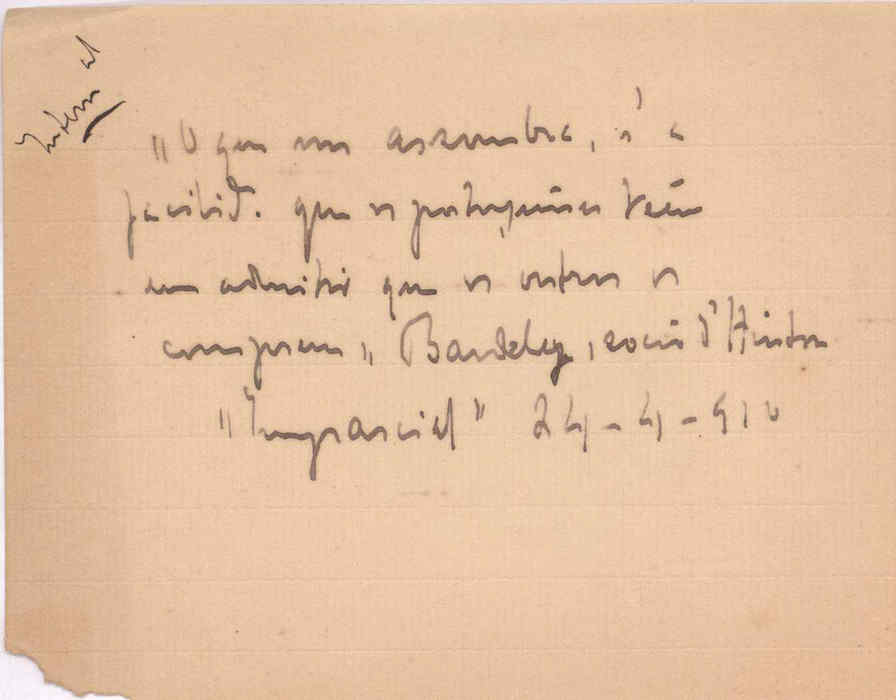 "O que me assombra, é a
facilid. que os portugueses teem
em admitir que os outros os
comprem" Bardsley, socio d'Hinton
"Imparcial" 24-4-910